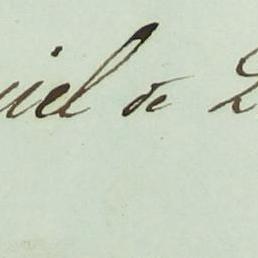 uiel de